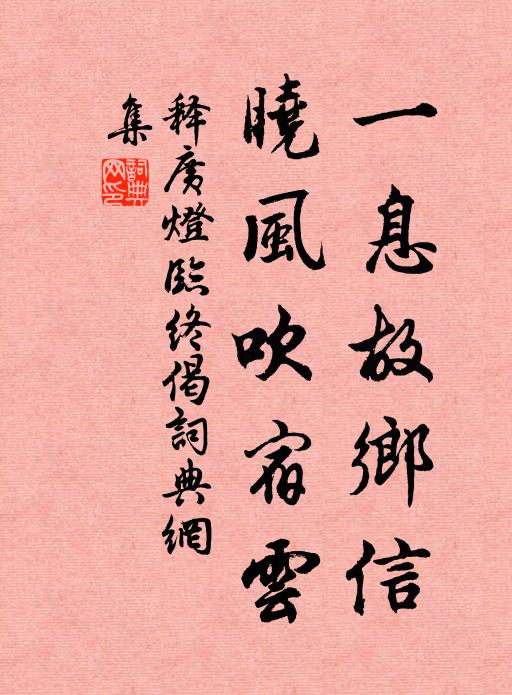 一息故鄉信
曉風吹宿雲
释廣燈臨终偈詞典網
集
詞典
网印